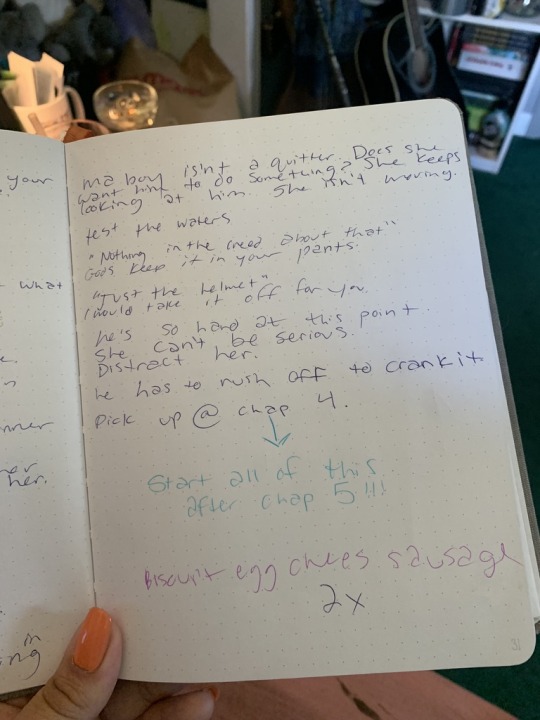 your
what
nner
her.
in
ng
ma boy isn't a quitter. Does she
want him to do something? She keeps
looking at him. She isn't moving.
test the waters
"Nothing in the creed about that"
Gods keep it in your pants.
"Just the helmet"
I would take it off for you.
he's so hard at this point.
She can't be serious.
Distract her.
he has to rush off to crank it
Pick up @ chap 4.
Start all of this
after chap 5!!!
Biscuit egg chees sausage
2x
31